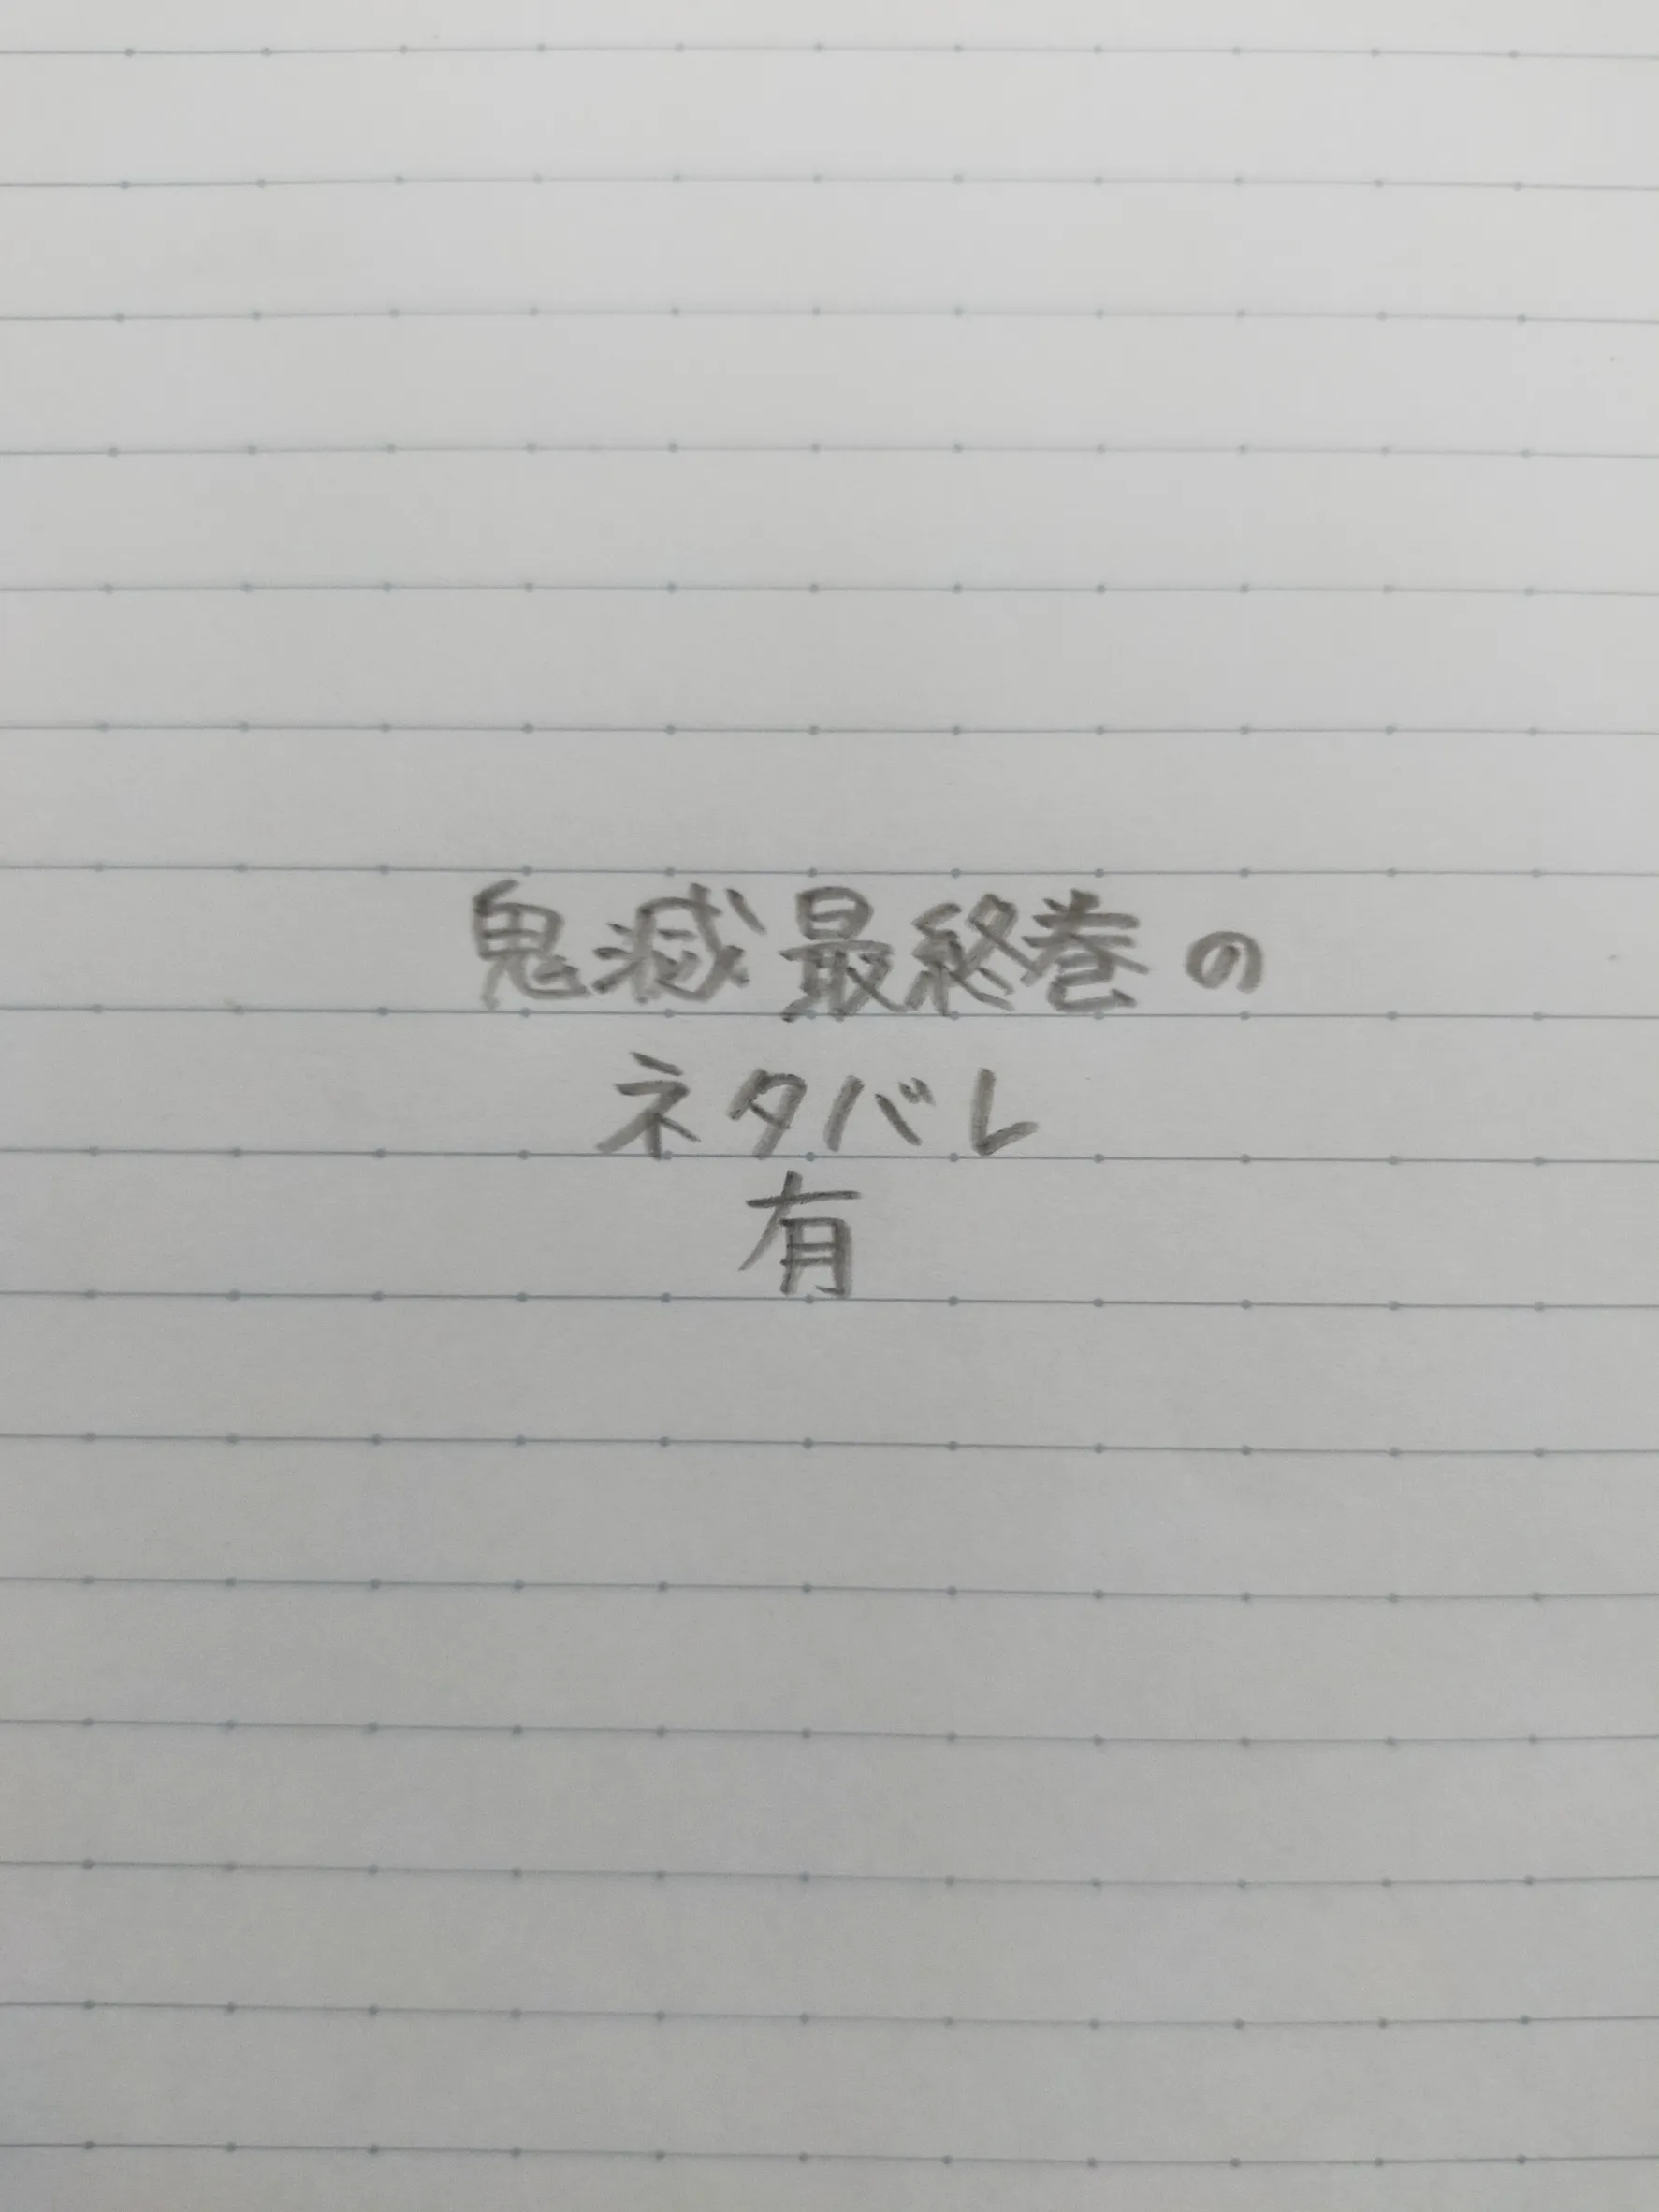 鬼滅最終巻の
ネタバレ
有